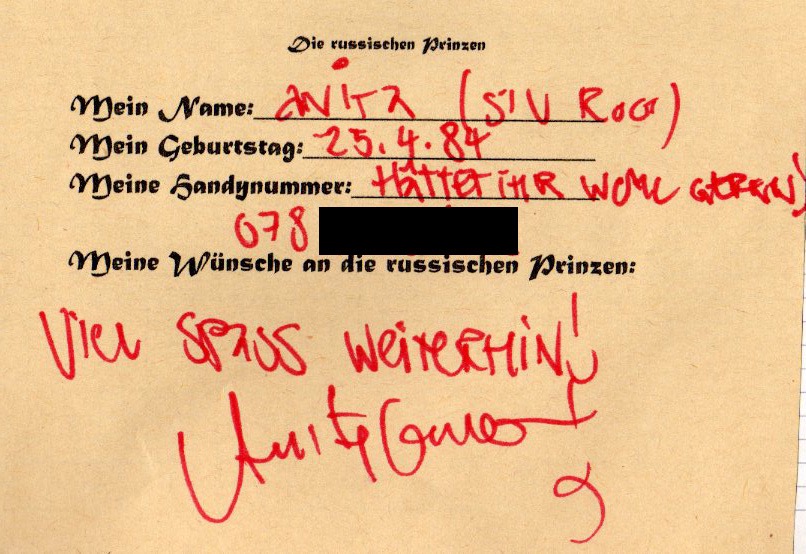 Die russischen Prinzen
Mein Name: ANITA (SIV ROG)
Mein Geburtstag: 25.4.84
Meine Handynummer: HÄTTET IHR WOHL GEREN!
078
Meine Wünsche an die russischen Prinzen:
VIEL SPASS WEITERHIN!
Anita